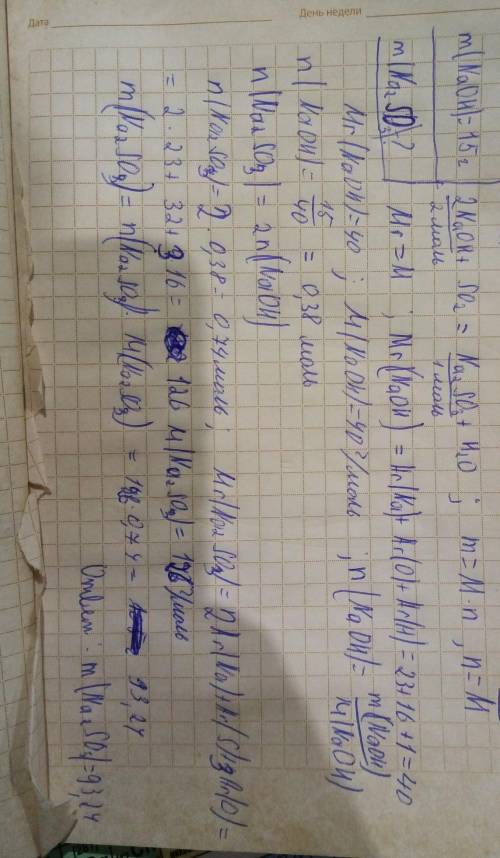 Дата День недели
m(NaOH)=15 г | 2NaOH + SO₂ = Na₂SO₃ + H₂O ; m=M·n , n=
M
2 моль 1 моль
m(Na₂SO₃)? Mr=M ; Mr(NaOH) = Ar(Na)+Ar(O)+Ar(H)=23+16+1=40
Mr(NaOH)=40 ; M(NaOH)=40 г/моль ; n(NaOH)= m(NaOH)
M(NaOH)
n(NaOH)= 15
40 = 0,38 моль
n(Na₂SO₃) = 2n(NaOH)
n(Na₂SO₃)=2·0,38=0,74моль ; Mr(Na₂SO₃)=2Ar(Na)+Ar(S)+3Ar(O)=
= 2·23+32+3·16= 126 M(Na₂SO₃)=126 г/моль
m(Na₂SO₃)= n(Na₂SO₃) M(Na₂SO₃) = 126·0,74= 93,24
Ответ: m(Na₂SO₃)=93,24